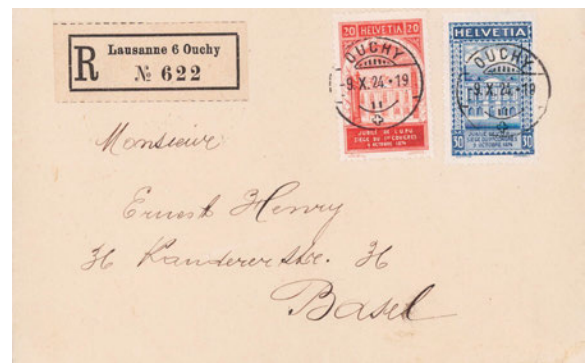 R Lausanne 6 Ouchy
№ 622
20 HELVETIA 20
OUCHY
-9.X.24.-19
JUBILÉ DE L'UPU
SIÈGE DU 1ER CONGRÈS
9 OCTOBRE 1874
HELVETIA
OUCHY
-9.X.24.-19
9 OCTOBRE 1874
30 30
Monsieur
Ernest Henry
36 Kandererstr. 36
Basel